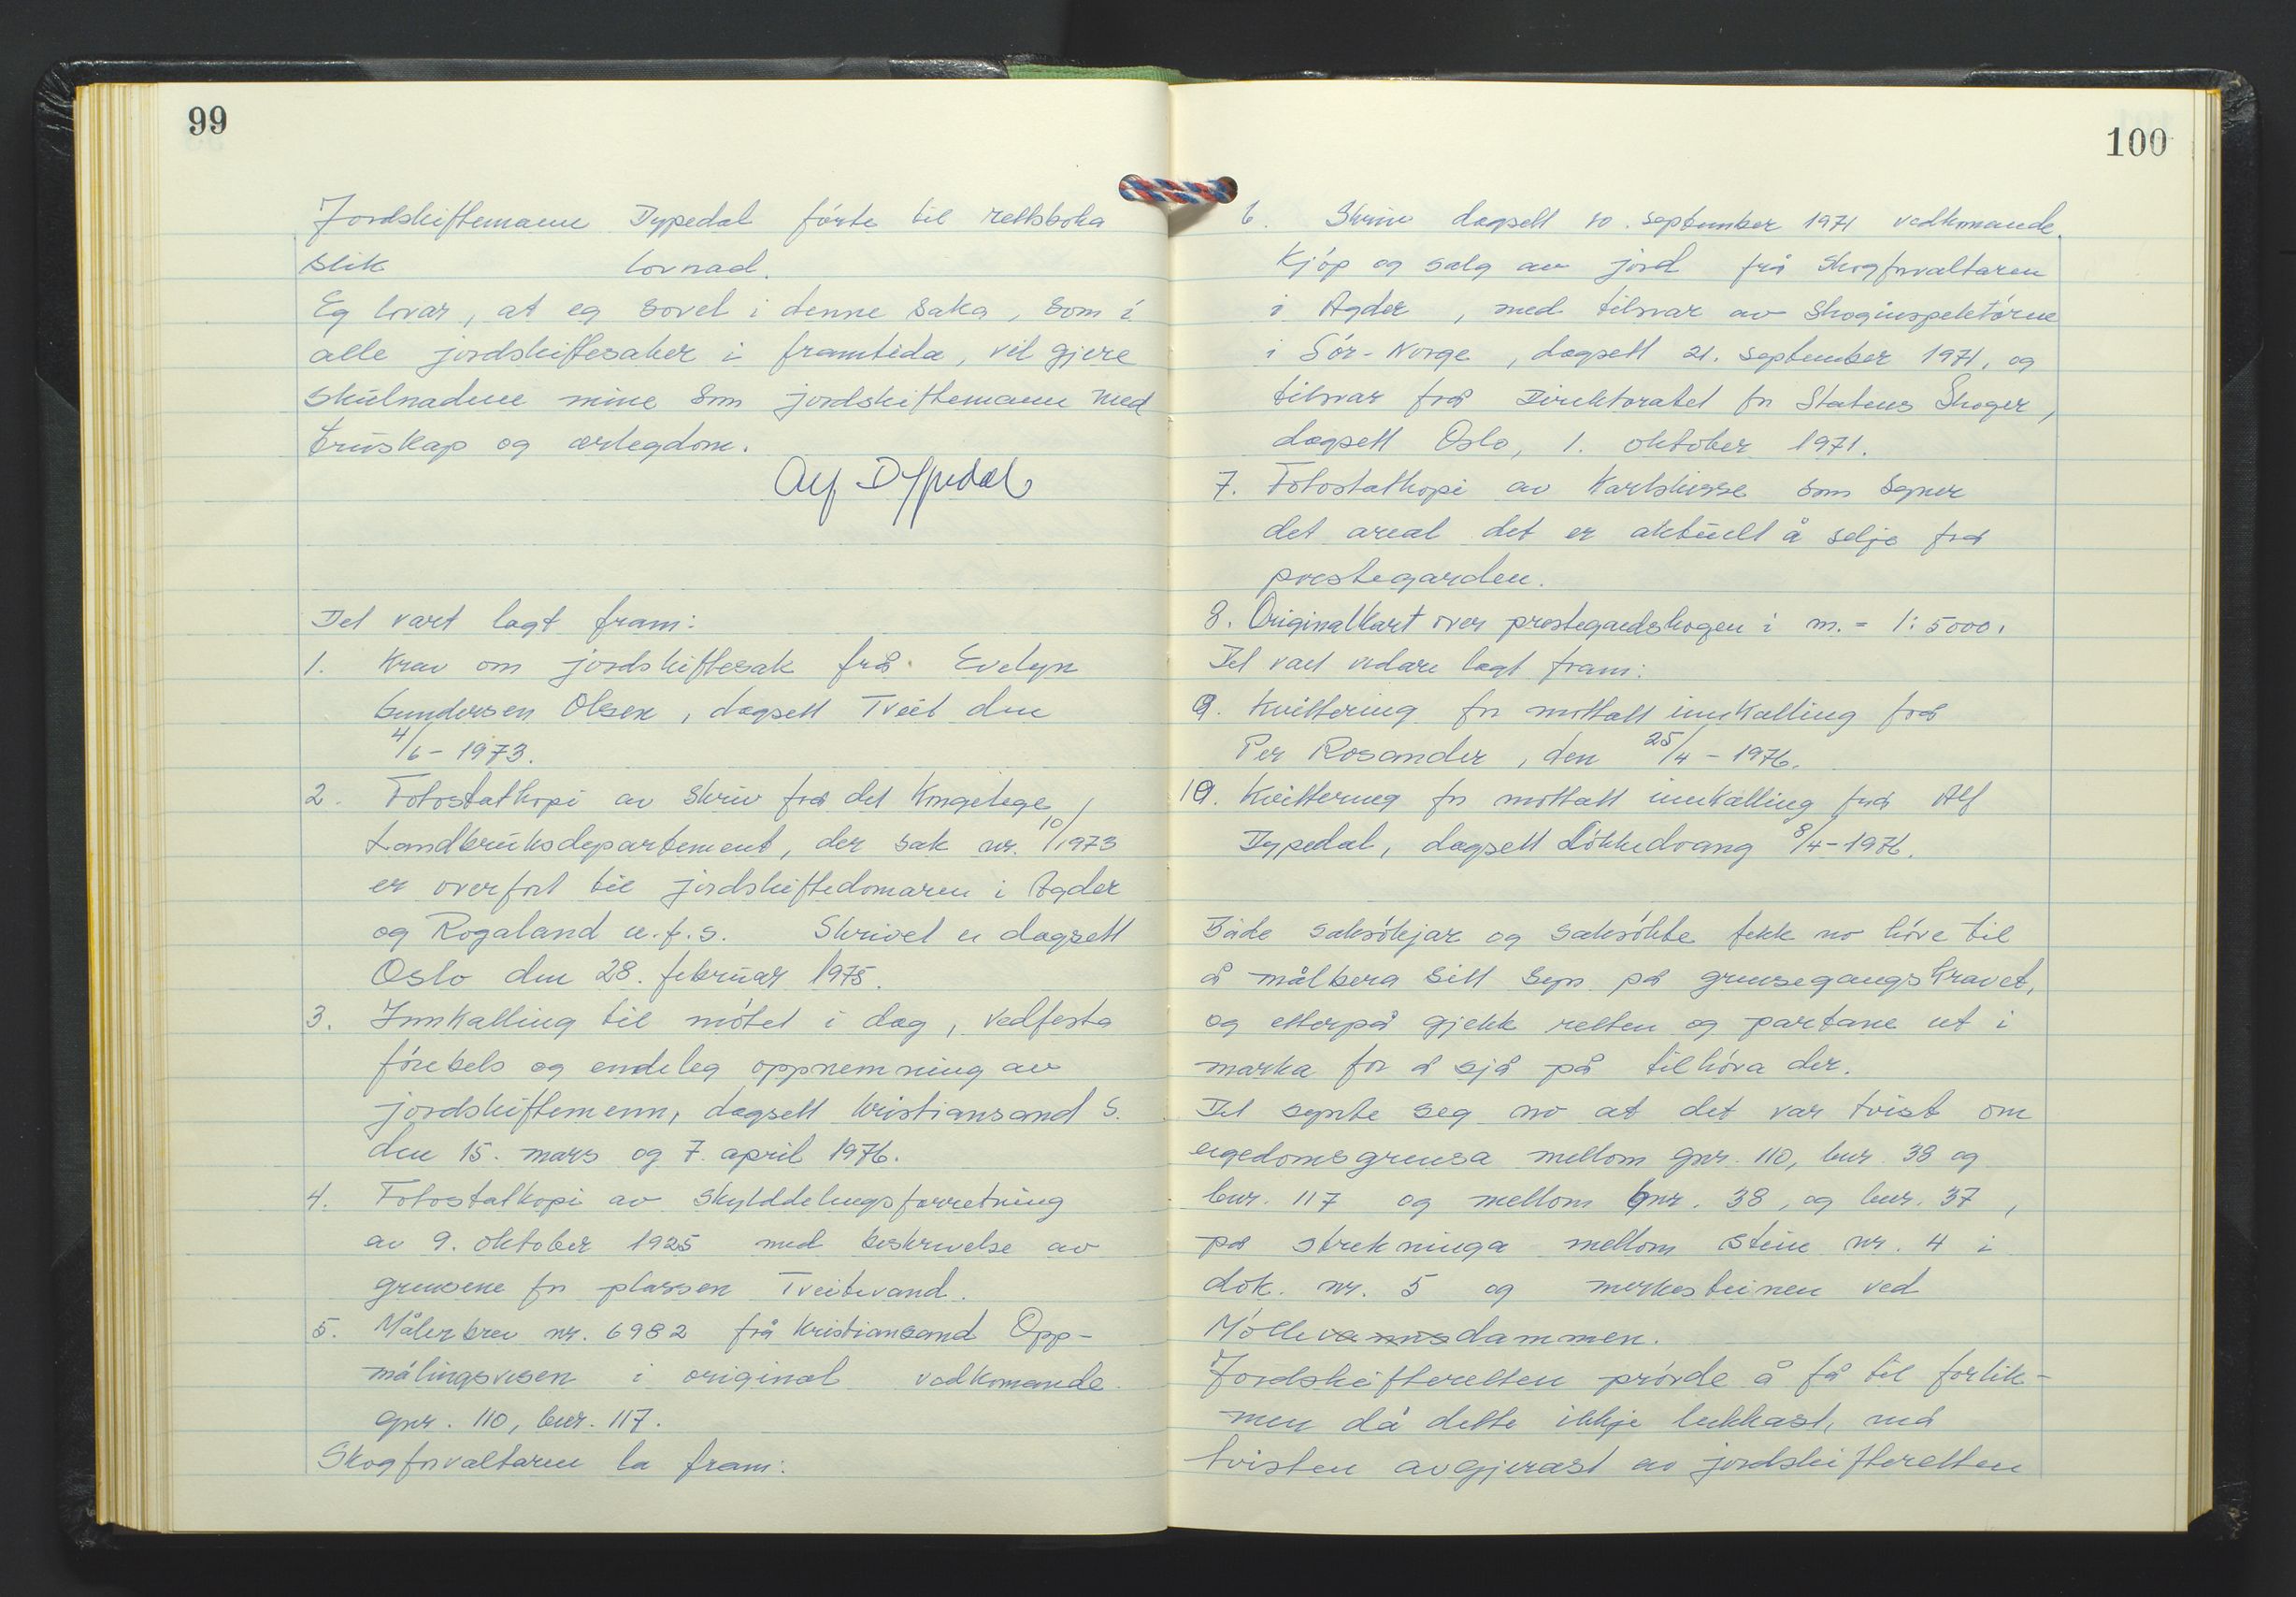 99
Jordskiftemann Dypedal førte til rettsboka
slik lovnad.
Eg lovar, at eg sovel i denne saka, som i
alle jordskiftesaker i framtida, vil gjere
skulnadene mine som jordskiftemann med
truskap og ærlegdom.
Alf Dypedal
Det vart lagt fram:
1. Krav om jordskiftesak frå Evelyn
Gundersen Olsen, dagsett Tveit den
4/6 - 1973.
2. Fotostatkopi av skriv frå det Kongelege
Landbruksdepartement, der sak nr. 10/1973
er overført til jordskiftedomaren i Agder
og Rogaland u.f.s. Skrivet er dagsett
Oslo den 28. februar 1975.
3. Innkalling til møtet i dag, vedfesta
førebels og endeleg oppnemning av
jordskiftemenn, dagsett Kristiansand S.
den 15. mars og 7. april 1976.
4. Fotostatkopi av skylddelingsforretning
av 9. oktober 1925 med beskrivelse av
grensene for plassen Tveitevand.
5. Målerbrev nr. 6982 frå Kristiansand Opp-
målingsvesen i original vedkomande
gnr. 110, bnr. 117.
Skogforvaltaren la fram:
100
6. Skriv dagsett 10. september 1971 vedkomande
Kjøp og salg av jord frå skogforvaltaren
i Agder, med tilsvar av Skoginspektøren
i Sør-Norge, dagsett 21. september 1971, og
tilsvar frå Direktoratet for Statens Skoger,
dagsett Oslo, 1. oktober 1971.
7. Fotostatkopi av Kartskisse som syner
det areal det er aktuelt å selje frå
prestegarden.
8. Originalkart over prestegardskogen i m. = 1:5000.
Det vart vidare lagt fram:
9. Kvittering for mottatt innkalling frå
Per Rosander, den 25/4 - 1976.
10. Kvittering for mottatt innkalling frå Alf
Dypedal, dagsett Løkkedvang 8/4-1976.
Både saksøkjar og saksøkte fekk no høve til
å målbera sitt syn på grensegangskravet,
og etterpå gjekk retten og partane ut i
marka for å sjå på tilhøva der.
Det synte seg no at det var tvist om
eigedomsgrensa mellom gnr. 110, bnr. 38 og
bnr. 117 og mellom bnr. 38, og bnr. 37,
på strekninga mellom stein nr. 4 i
dok. nr. 5 og merkesteinen ved
Møllevannsdammen.
Jordskifteretten prøvde å få til forlik-
men då dette ikkje lukkast, må
tvisten avgjerast av jordskifteretten